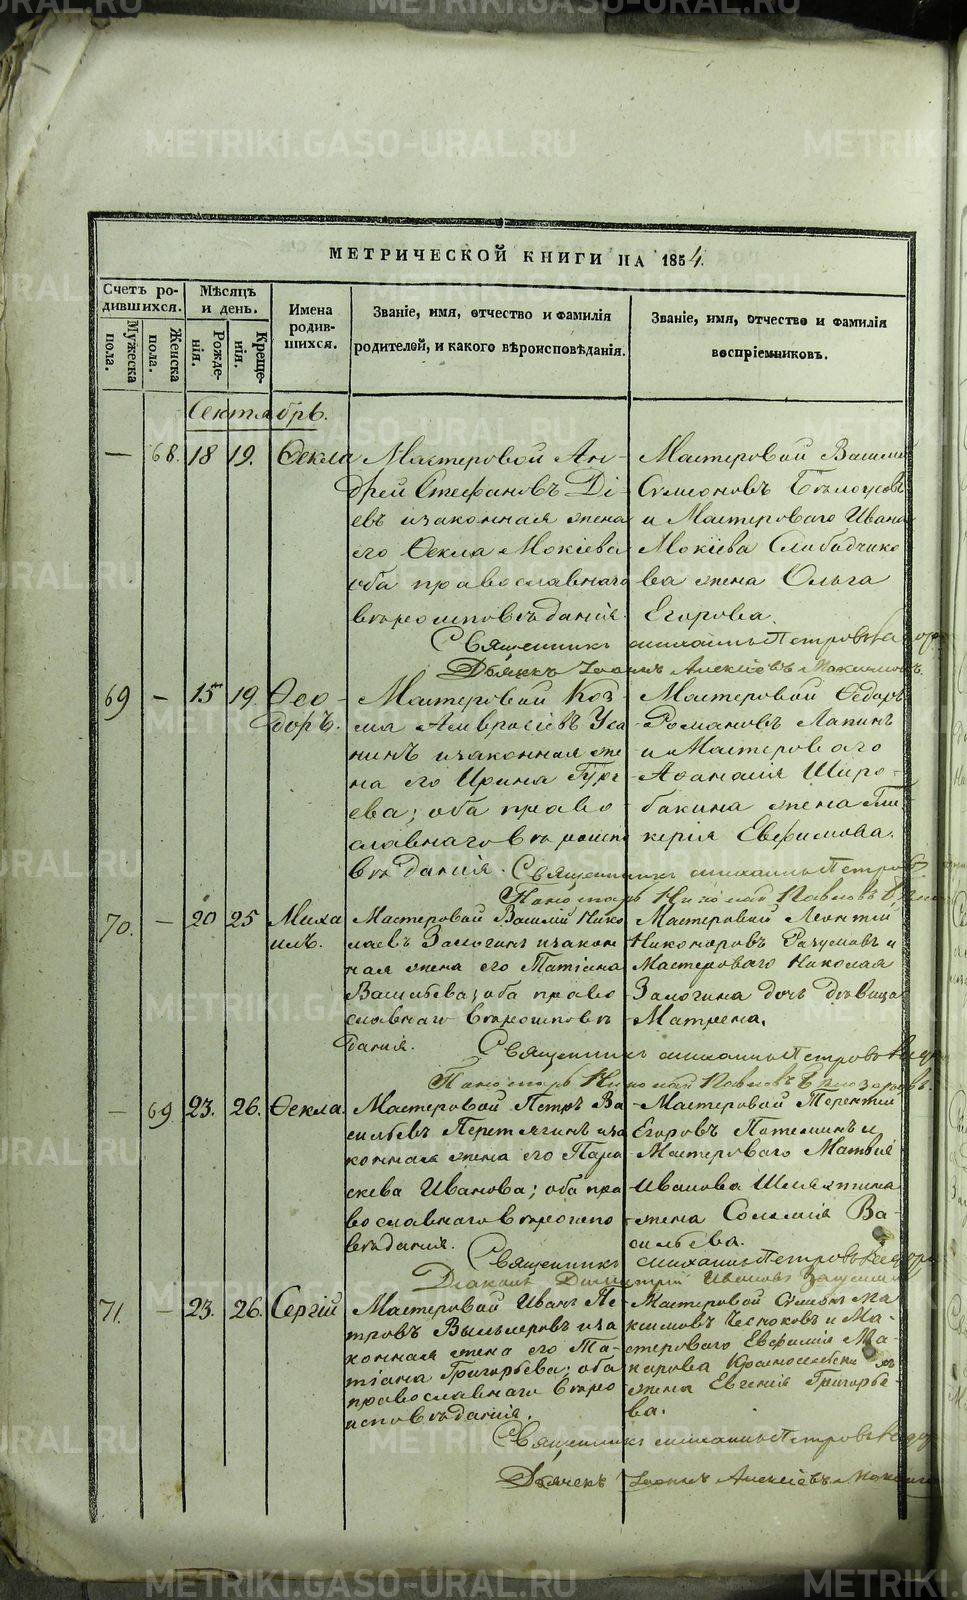 METRIKI.GASO-URAL.RU
МЕТРИЧЕСКОЙ КНИГИ НА 1854.
Счетъ ро-
дившихся.
Мужеска
пола.
Женска
пола.
Мѣсяцъ
и день.
Рожде-
нія.
Креще-
нія.
Имена
родив-
шихся.
Званіе, имя, отчество и фамилія
родителей, и какого вѣроисповѣданія.
Званіе, имя, отчество и фамилія
воспріемниковъ.
Сентябрь.
— 68. 18 19. Ѳекла
Мастеровой Ан-
дрей Стефановъ Ді-
евъ и законная жена
его Ѳекла Мокіева
оба православнаго
вѣроисповѣданія.
Мастеровой Васили
Симеоновъ Бѣлоусовъ
и Мастероваго Ивана
Мокіева Слободчико
ва жена Ольга
Егорова.
Священникъ Михаилъ Петровъ
Дьячекъ Іоаннъ Алексіевъ
69 — 15 19. Ѳео-
доръ.
Мастеровой Коз
ма Амвросіевъ Уса
нинъ и законная же
на его Ирина Гурі-
ева; оба право
славнаго вѣроиспо
вѣданія.
Мастеровой Ѳедоръ
Романовъ Лапинъ
и Мастероваго
Аѳанасія Широ-
бакина жена Гли
керія Евфимова.
Священникъ Михаилъ Петровъ
Пономарь Николай Павловъ
70. — 20 25 Миха
илъ.
Мастеровой Василій Нико
лаевъ Замогинъ и закон
ная жена его Татіана
Васильева; оба право
славнаго вѣроисповѣ
данія.
Мастеровой Леонтій
Никоноровъ Разумовъ и
Мастероваго Николая
Замогина дочь дѣвица
Матрена.
Священникъ Михаилъ Петровъ
Пономарь Николай Павловъ Бѣлозеровъ
— 69 23. 26. Ѳекла.
Мастеровой Петръ Ва
сильевъ Перетягинъ и за
конная жена его Пара
скева Иванова; оба пра
вославнаго вѣроиспо
вѣданія.
Мастеровой Терентій
Егоровъ Потеминъ и
Мастероваго Матвія
Иванова жена Соломія Ва-
сильева.
Священникъ Михаилъ Петровъ
Діаконъ Димитрій Ивановъ
71. — 23. 26. Сергій
Мастеровой Иванъ Пе
тровъ и за
конная жена его Та-
тіана Григорьева; оба
православнаго вѣро
исповѣданія.
Мастеровой Симеонъ Ма
ксимовъ Чесноковъ и Ма-
стероваго Евфимія Ма-
карова
жена Евгенія Григорье-
ва.
Священникъ Михаилъ Петровъ
Дьячекъ Іоаннъ Алексіевъ